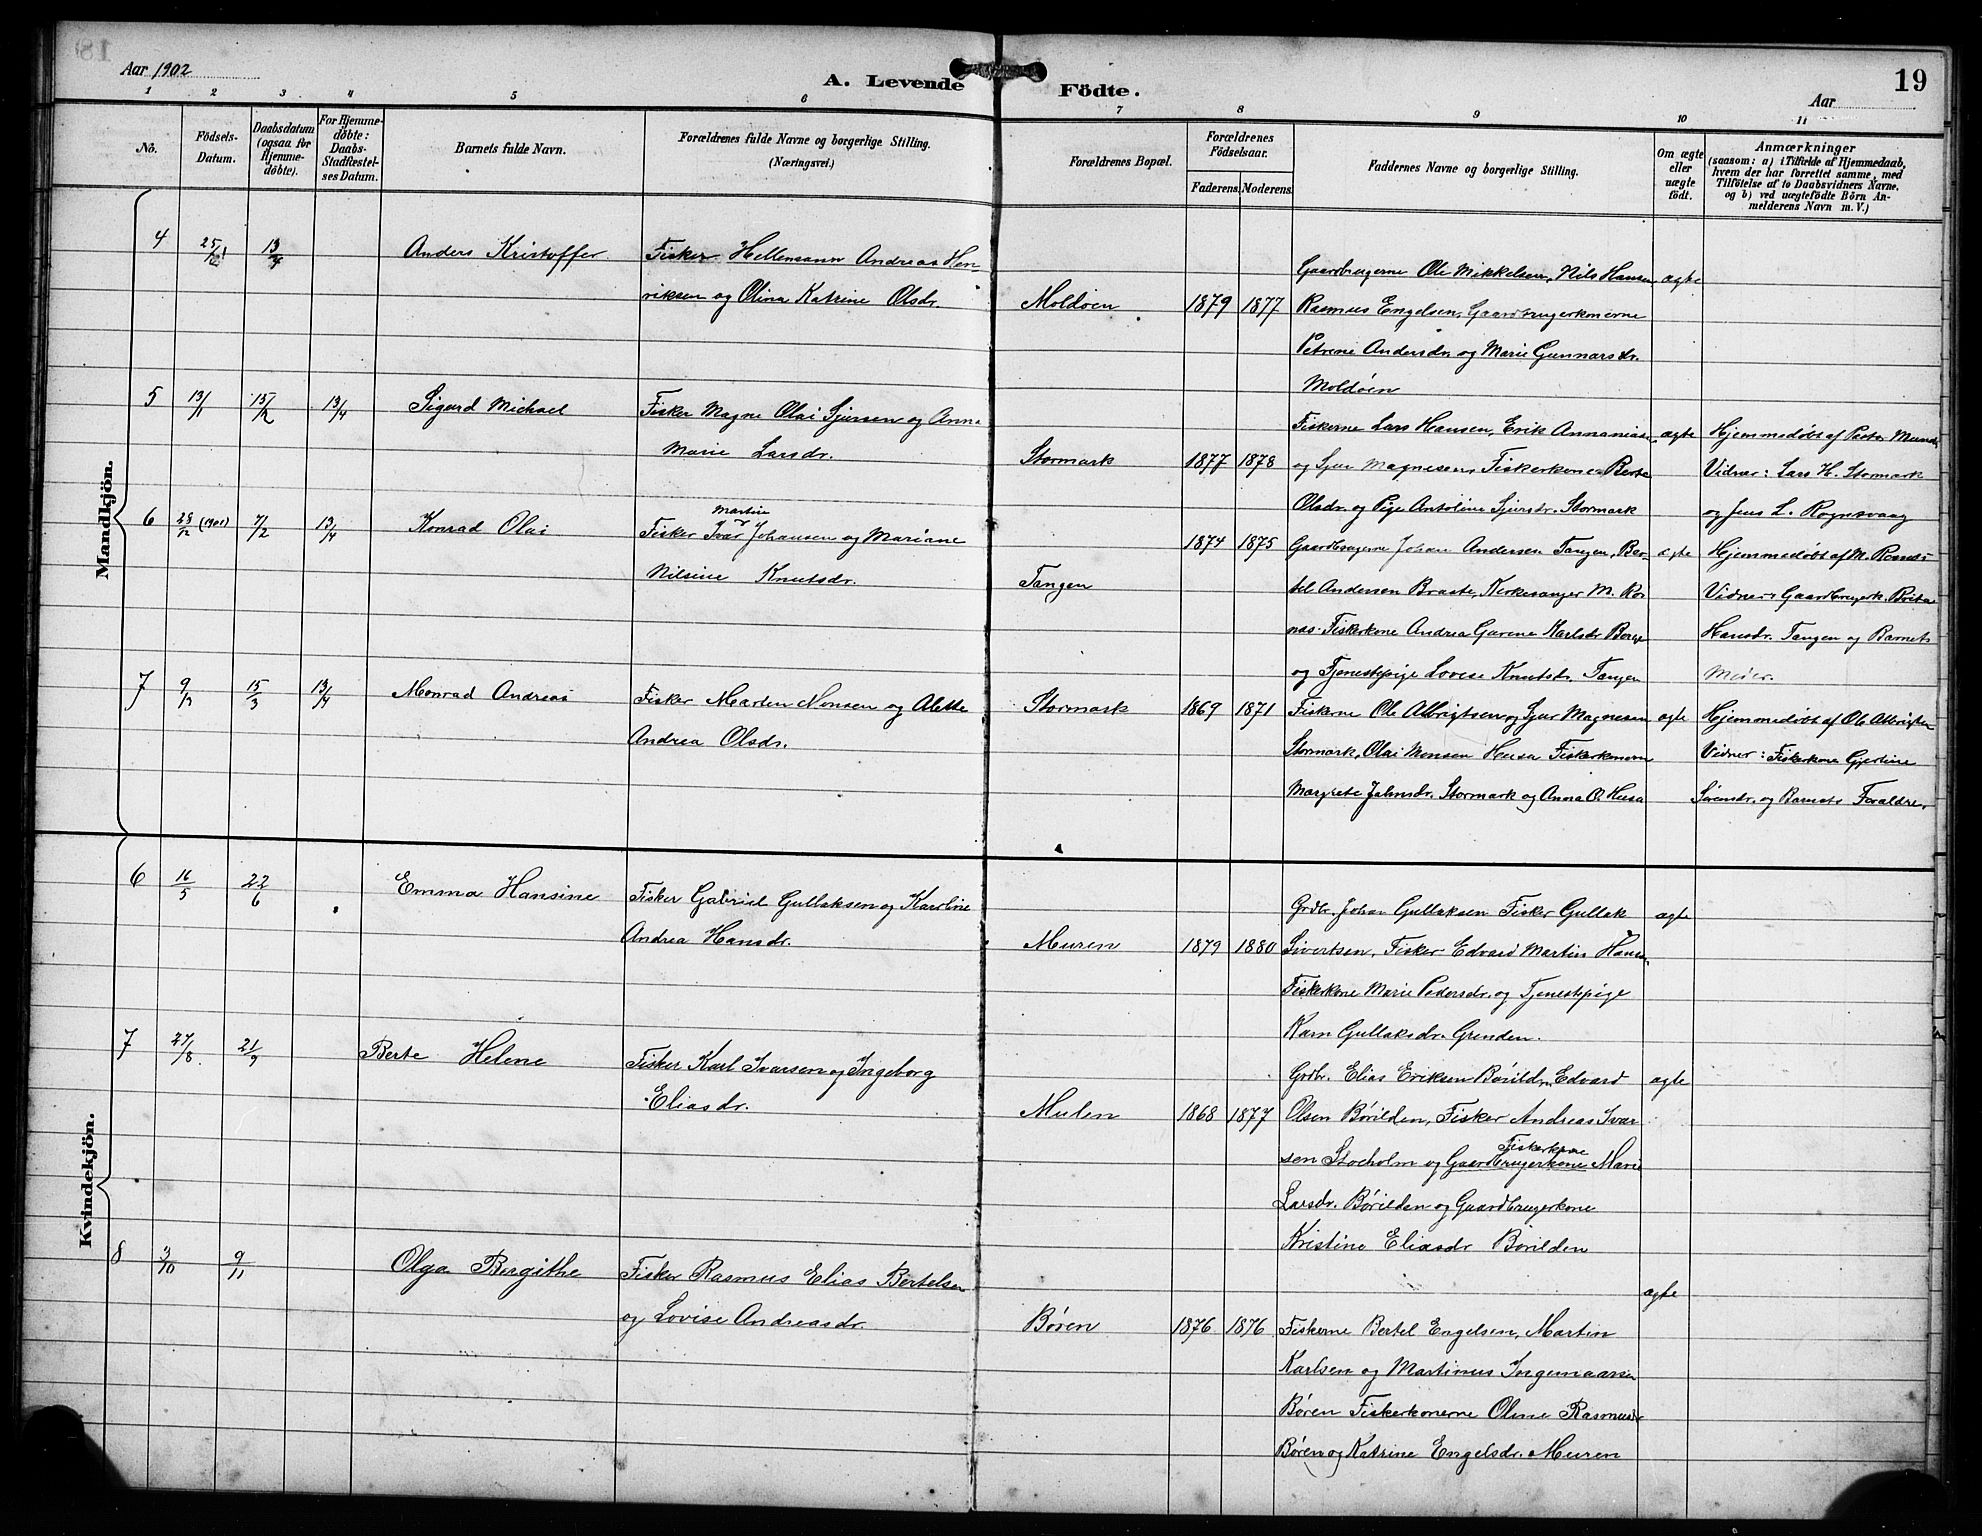 Aar 1902
A. Levende Födte.
19
Aar
1 2 3 4 5 6 7 8 9 10 11
No.
Födsels-
Datum.
Daabsdatum
(ogsaa for
Hjemme-
döbte).
For Hjemme-
döbte:
Daabs-
Stadfæstel-
ses Datum.
Barnets fulde Navn.
Forældrenes fulde Navne og borgerlige Stilling.
(Næringsvei.)
Forældrenes Bopæl.
Forældrenes
Födselsaar.
Faderens. Moderens.
Faddernes Navne og borgerlige Stilling.
Om ægte
eller
uægte
födt.
Anmærkninger
(saasom: a) i Tilfælde af Hjemmedaab,
hvem der har forrettet samme, med
Tilföielse af to Daabsvidners Navne,
og b) ved uægtefödte Börn An-
melderens Navn m. V.)
Mandkjön.
4
13/4
Anders Kristoffer
Fisker Hellemann Andreas Hen-
riksen og Olina Katrine Olsdr.
Moldøen
1879 1877
Gaardbrugerne Ole Mikkelsen, Nils Hansen
Rasmus Engelsen, Gaardbrugerkonerne
Petrene Andersdr. og Marie Gunnarsdr.
Moldøen
ægte
5
13/1
15/2
13/4
Sigurd Michael
Fisker Magne Olai Sjursen og Anna
Marie Larsdr.
Stormark
1877 1878
Fiskerne Lars Hansen, Erik Annanias
og Sjur Magnesen, Fiskerkone Berte
Olsdr. og Pige Antoline Sjursdr. Stormark
ægte
Hjemmedøbt af Pastor Mund
Vidner: Lars H. Stormark
og Jens L. Rognsvaag
6
(1901)
7/2
13/4
Konrad Olai
Martin
Fisker Ivar Johansen og Mariane
Nilsine Knutsdr.
Tangen
1874 1875
Gaardbrugerne Johan Andersen Tangen, Ber-
tel Andersen Braste, Kirkesanger M. Ros
nes. Fiskerkone Andrea Gurene Karlsdr
og Tjenestepige Lovise Knutsdr. Tangen
ægte
Hjemmedøbt af M. Rosnes
Vidner: Gaardbrugerk. Brita
Hansdr. Tangen og Barnets
Moder.
7
9/3
15/3
13/4
Monrad Andreas
Fisker Marten Monsen og Alette
Andrea Olsdr.
Stormark
1869 1871
Fiskerne Ole Albrigtsen og Sjur Magnesen
Stormark, Olai Monsen Husa Fiskerkonerne
Margrete Johnsdr. Stormark og Anna O. Husa
ægte
Hjemmedøbt af Ole Albrigtsen
Vidner: Fiskerkone Gjertine
Sørensdr. og Barnets Forældre.
Kvindekjön.
6
16/5
22/6
Emma Hansine
Fisker Gabriel Gullaksen og Karoline
Andrea Hansdr.
Muren
1879 1880
Grdbr. Johan Gullaksen Fisker Gullak
Sivertsen, Fisker Edvard Martin Hansen
Fiskerkone Marie Pedersdr. og Tjenestepige
Karn Gullaksdr. Grinden.
ægte
7
27/8
21/9
Berte Helene
Fisker Karl Ivarsen og Ingeborg
Eliasdr.
Mulen
1868 1877
Grdbr. Elias Eriksen Børild, Edvard
Olsen Børilden, Fisker Andreas Ivar
Fiskerkone
sen Stocholm og Gaardbrugerkone Marie
Larsdr. Børilden og Gaardbrugerkone
Kristine Eliasdr Børilden
ægte
8
3/10
9/11
Olga Bergithe
Fisker Rasmus Elias Bertelsen
og Lovise Andreasdr.
Børen
1876 1876
Fiskerne Bertel Engelsen, Martin
Karlsen og Martinus Ingemaarsen
Børen Fiskerkonerne Oline Rasmusdr
Børen og Katrine Engelsdr. Muren
ægte